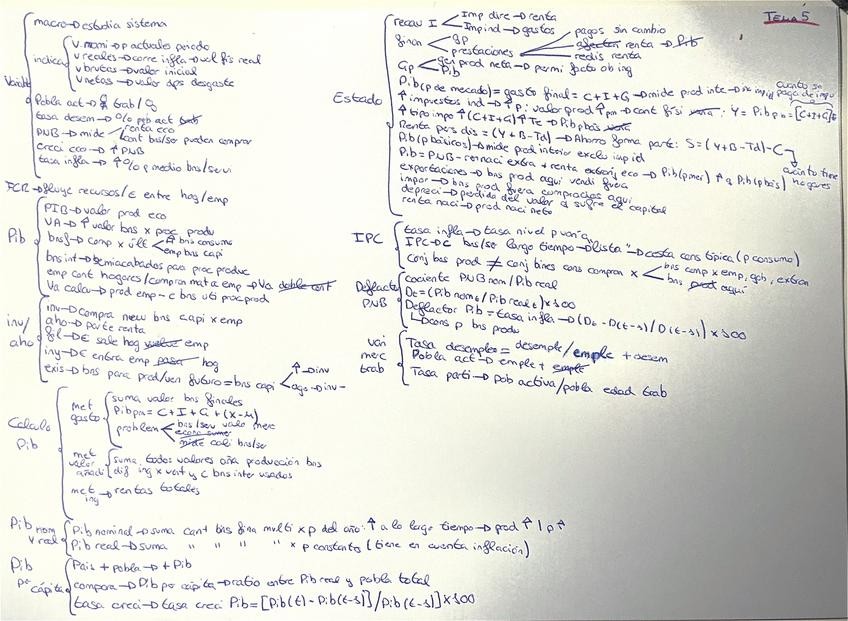 TEMA 5
macro → estudia sistema
Variab
indica
v.nomi → p actuales periodo
v reales → corre infla → vol fis real
v brutas → valor inicial
v netas → valor dps desgaste
Pobla act → trab /
tasa desem → % pob act
PNB → mide renta eco
cant bns/ser pueden comprar
creci eco → ↑ PNB
tasa infla → ↑ % p medio bns/servi
FCR → fluye recursos/€ entre hog/emp
Pib
PIB → valor prod eco
VA → ↑ valor bns x proc produ
bnsf → comp x últ
bns consumo
emp bns capi
bns int → semiacabados para proc produc
emp cont hogares/compran mat a emp → Va doble cont
Va calcu → prod emp - c bns uti proc prod
inv/
aho
inv → compra new bns capi x emp
aho → parte renta
fil → € sale hog vuelve emp
iny → € entra emp pasa hog
exis → bns para prod/ven futuro = bns capi
↑ → inv
ago → inv -
Calculo
Pib
met
gasto
suma valor bns finales
Pibpm = C + I + G + (X-M)
problem
bns/seu valo merc
econo sumer
mide cali bns/ser
met
valor
añadi
suma todos valores aña producción bns
dif ing x vent y c bns inter usados
met
ing
→ rentas totales
Pib nom
y real
Pib nominal → suma cant bns fina multi x p del año: ↑ a lo largo tiempo → prod ↑ / p ↑
Pib real → suma " " " " x p constantes (tiene en cuenta inflación)
Pib
per cápita
Pais + pobla → + Pib
compara → Pib per cápita → ratio entre Pib real y pobla total
tasa creci → tasa creci Pib = [Pib(t) - Pib(t-1)] / Pib(t-1)] x 100
Estado
recau I
Imp dire → renta
Imp ind → gastos
finan
gp
prestaciones
pagos sin cambio
afectan renta → Pib
redis renta
Gp
gei prod neta → permi facto ob ing
Pib
Pib (p de mecado) = gasto final = C + I + G → mide prod inte → inc imp id
cuanto se
paga de impu
↑ impuestos ind → ↑ p: valor prod ↑ pm → cont fisi : Y = Pib pm = [C+I+G]-Te
↑ tipo impo ↑ (C+I+G) ↑ Te → Pib pbás
Renta pers dis = (Y+B-Td) → Ahorro forma parte: S = (Y+B-Td) - C
cuánto tiene
hogares
Pib (p básicos) → mide prod interior exclu imp id
Pib = PNB - ren naci extra + renta extranj eco → Pib (pmer) ↑ q Pib (pbás)
exportaciones → bns prod aqui vendi fuera
impor → bns prod fuera comprados aqui
depreci → perdida del valor q sufre el capital
renta naci → prod naci neto
IPC
tasa infla → tasa nivel p varía
IPC → C bns/ser largo tiempo → "lista" → costa cons típica (p consumo)
Conj bns prod ≠ conj bines cons compran x
bns comp x emp, gob, extran
bns prod aquí
Deflacta
PNB
cociente PNB nom / Pib real
Dt = (Pib nomt / Pib realt) x 100
Deflactor Pib = tasa infla → (Dt - D(t-1) / D(t-1)) x 100
↳ cons p bns produ
vari
merc
trab
Tasa desemples = desemple/emple + desem
Pobla act → emple +
Tasa parti → pob activa/pobla edad trab